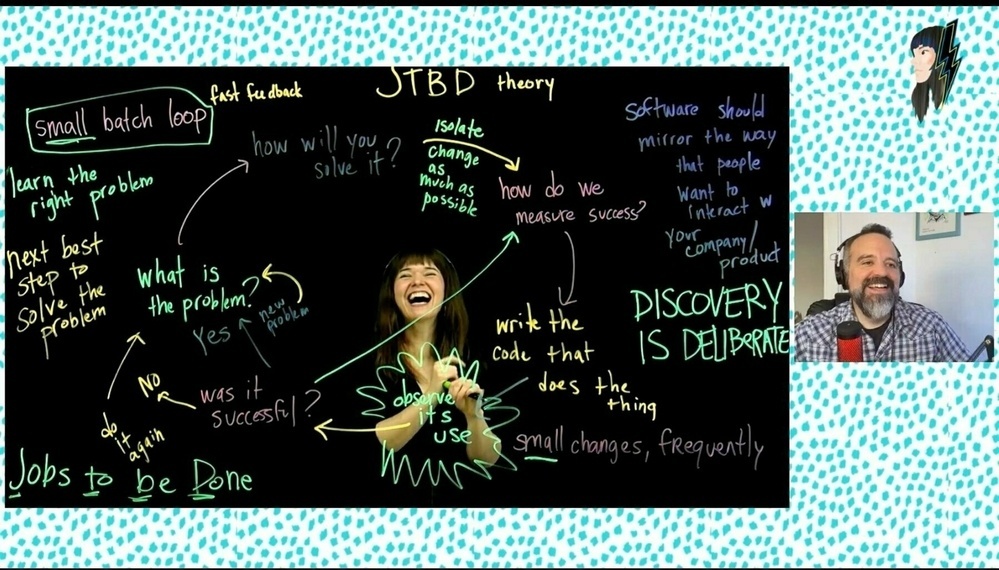 JTBD theory
small batch loop
fast feedback
how will you
solve it?
Isolate
change
as
much as
possible
how do we
measure success?
Software should
mirror the way
that people
want to
interact w
your
company/
product
learn the
right problem
next best
step to
solve the
problem
what is
the problem?
new
problem
Yes
No
do
it
again
was it
successful?
observe
it's
use
write the
code that
does the
thing
DISCOVERY
IS DELIBERATE
small changes, frequently
Jobs to be Done